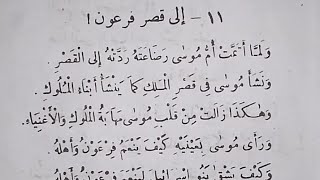 ١١ - إلى قصر فرعون !
وَلَمَّا أَتَمَّتْ أُمُّ مُوسَى رَضَاعَتَهُ رَدَّتْهُ إِلَى الْقَصْرِ .
وَنَشَأَ مُوسَى فِي قَصْرِ الْمَلِكِ كَمَا يَنْشَأُ أَبْنَاءُ الْمُلُوكِ .
وَهٰكَذَا زَالَتْ مِنْ قَلْبِ مُوسَى مَهَابَةُ الْمُلُوكِ وَالْأَغْنِيَاءِ.
وَرَأَى مُوسَى بِعَيْنَيْهِ كَيْفَ يَنْعَمُ فِرْعَوْنُ وَأَهْلُهُ
وَكَيْفَ يَشْقَى بَنُو إِسْرَائِيلَ لِيَنْعَمَ فِرْعَوْنُ وَأَهْلُهُ